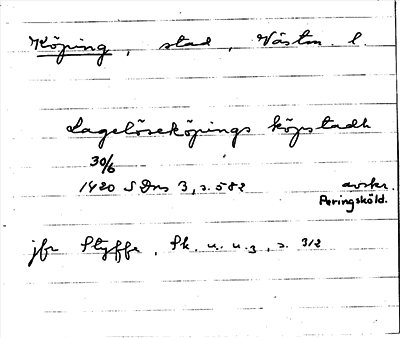 Köping, stad, Västm. l.
Lagelöseköpings köpstadh
30/6
1420 SDns 3, s. 582 avskr.
Peringsköld.
jfr Styffe, Sk. u. u. 3, s. 312